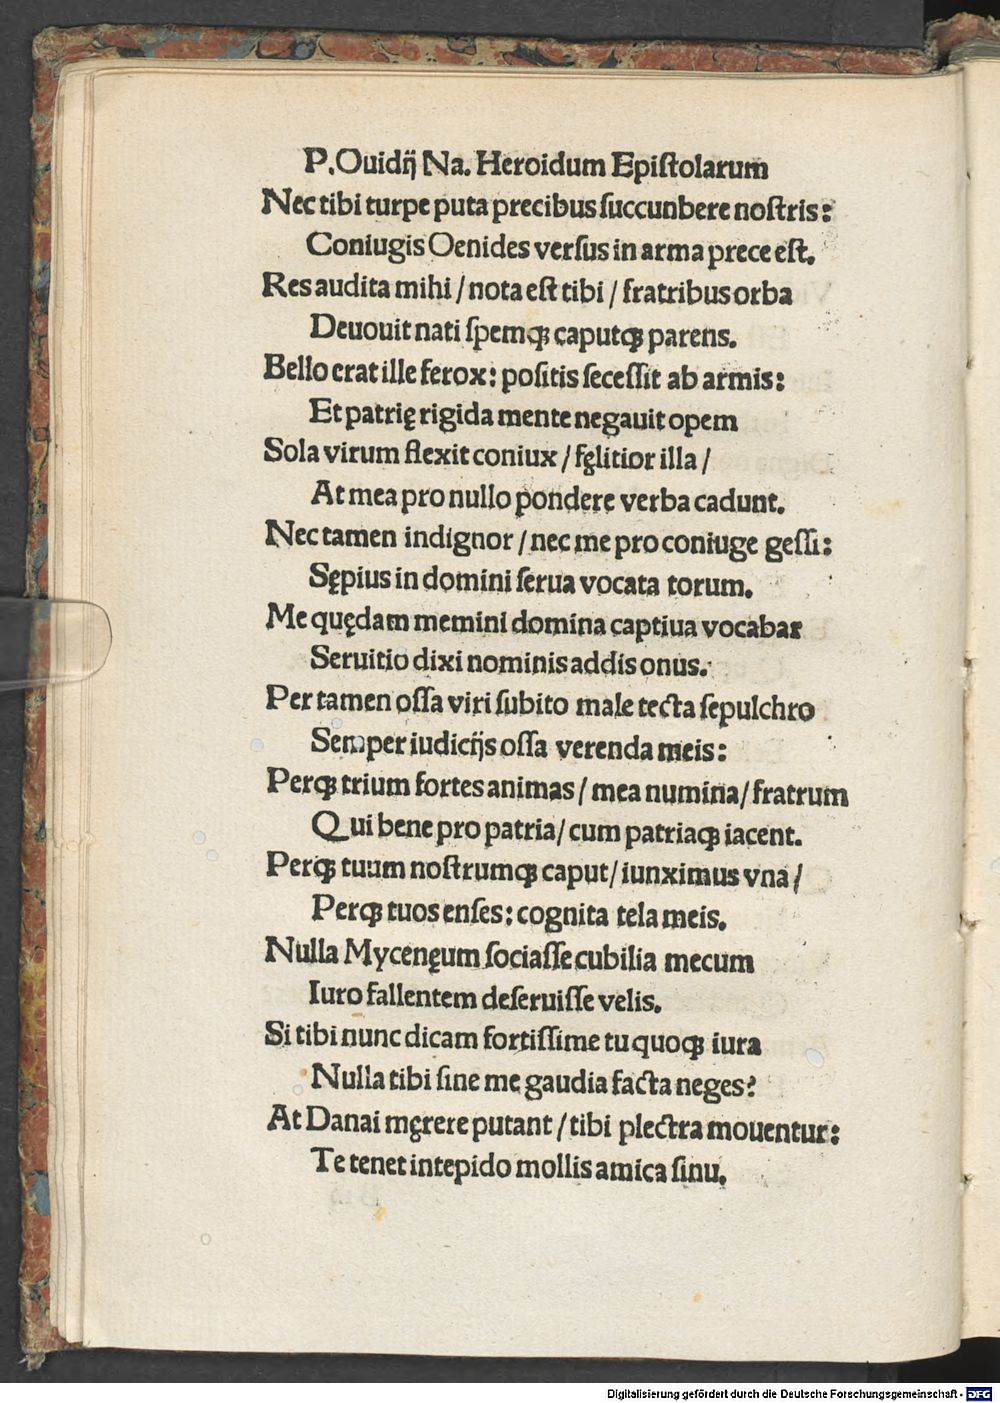 P. Ouidĳ Na. Heroidum Epiſtolarum
Nec tibi turpe puta precibus ſuccunbere noſtris:
Coniugis Oenides verſus in arma prece eſt.
Res audita mihi / nota eſt tibi / fratribus orba
Deuouit nati ſpemqꝫ caputqꝫ parens.
Bello erat ille ferox: poſitis ſeceſſit ab armis:
Et patrię rigida mente negauit opem
Sola virum flexit coniux / fęlitior illa /
At mea pro nullo pondere verba cadunt.
Nec tamen indignor / nec me pro coniuge geſſi:
Sępius in domini ſerua vocata torum.
Me quędam memini domina captiua vocabar
Seruitio dixi nominis addis onus.
Per tamen oſſa viri ſubito male tecta ſepulchro
Semper iudicĳs oſſa verenda meis:
Perqꝫ trium fortes animas / mea numina / fratrum
Qui bene pro patria / cum patriaqꝫ iacent.
Perqꝫ tuum noſtrumqꝫ caput / iunximus vna /
Perqꝫ tuos enſes: cognita tela meis.
Nulla Mycenęum ſociaſſe cubilia mecum
Iuro fallentem deſeruiſſe velis.
Si tibi nunc dicam fortiſſime tu quoqꝫ iura
Nulla tibi ſine me gaudia facta neges?
At Danai męrere putant / tibi plectra mouentur:
Te tenet in tepido mollis amica ſinu.
Digitalisierung gefördert durch die Deutsche Forschungsgemeinschaft - DFG